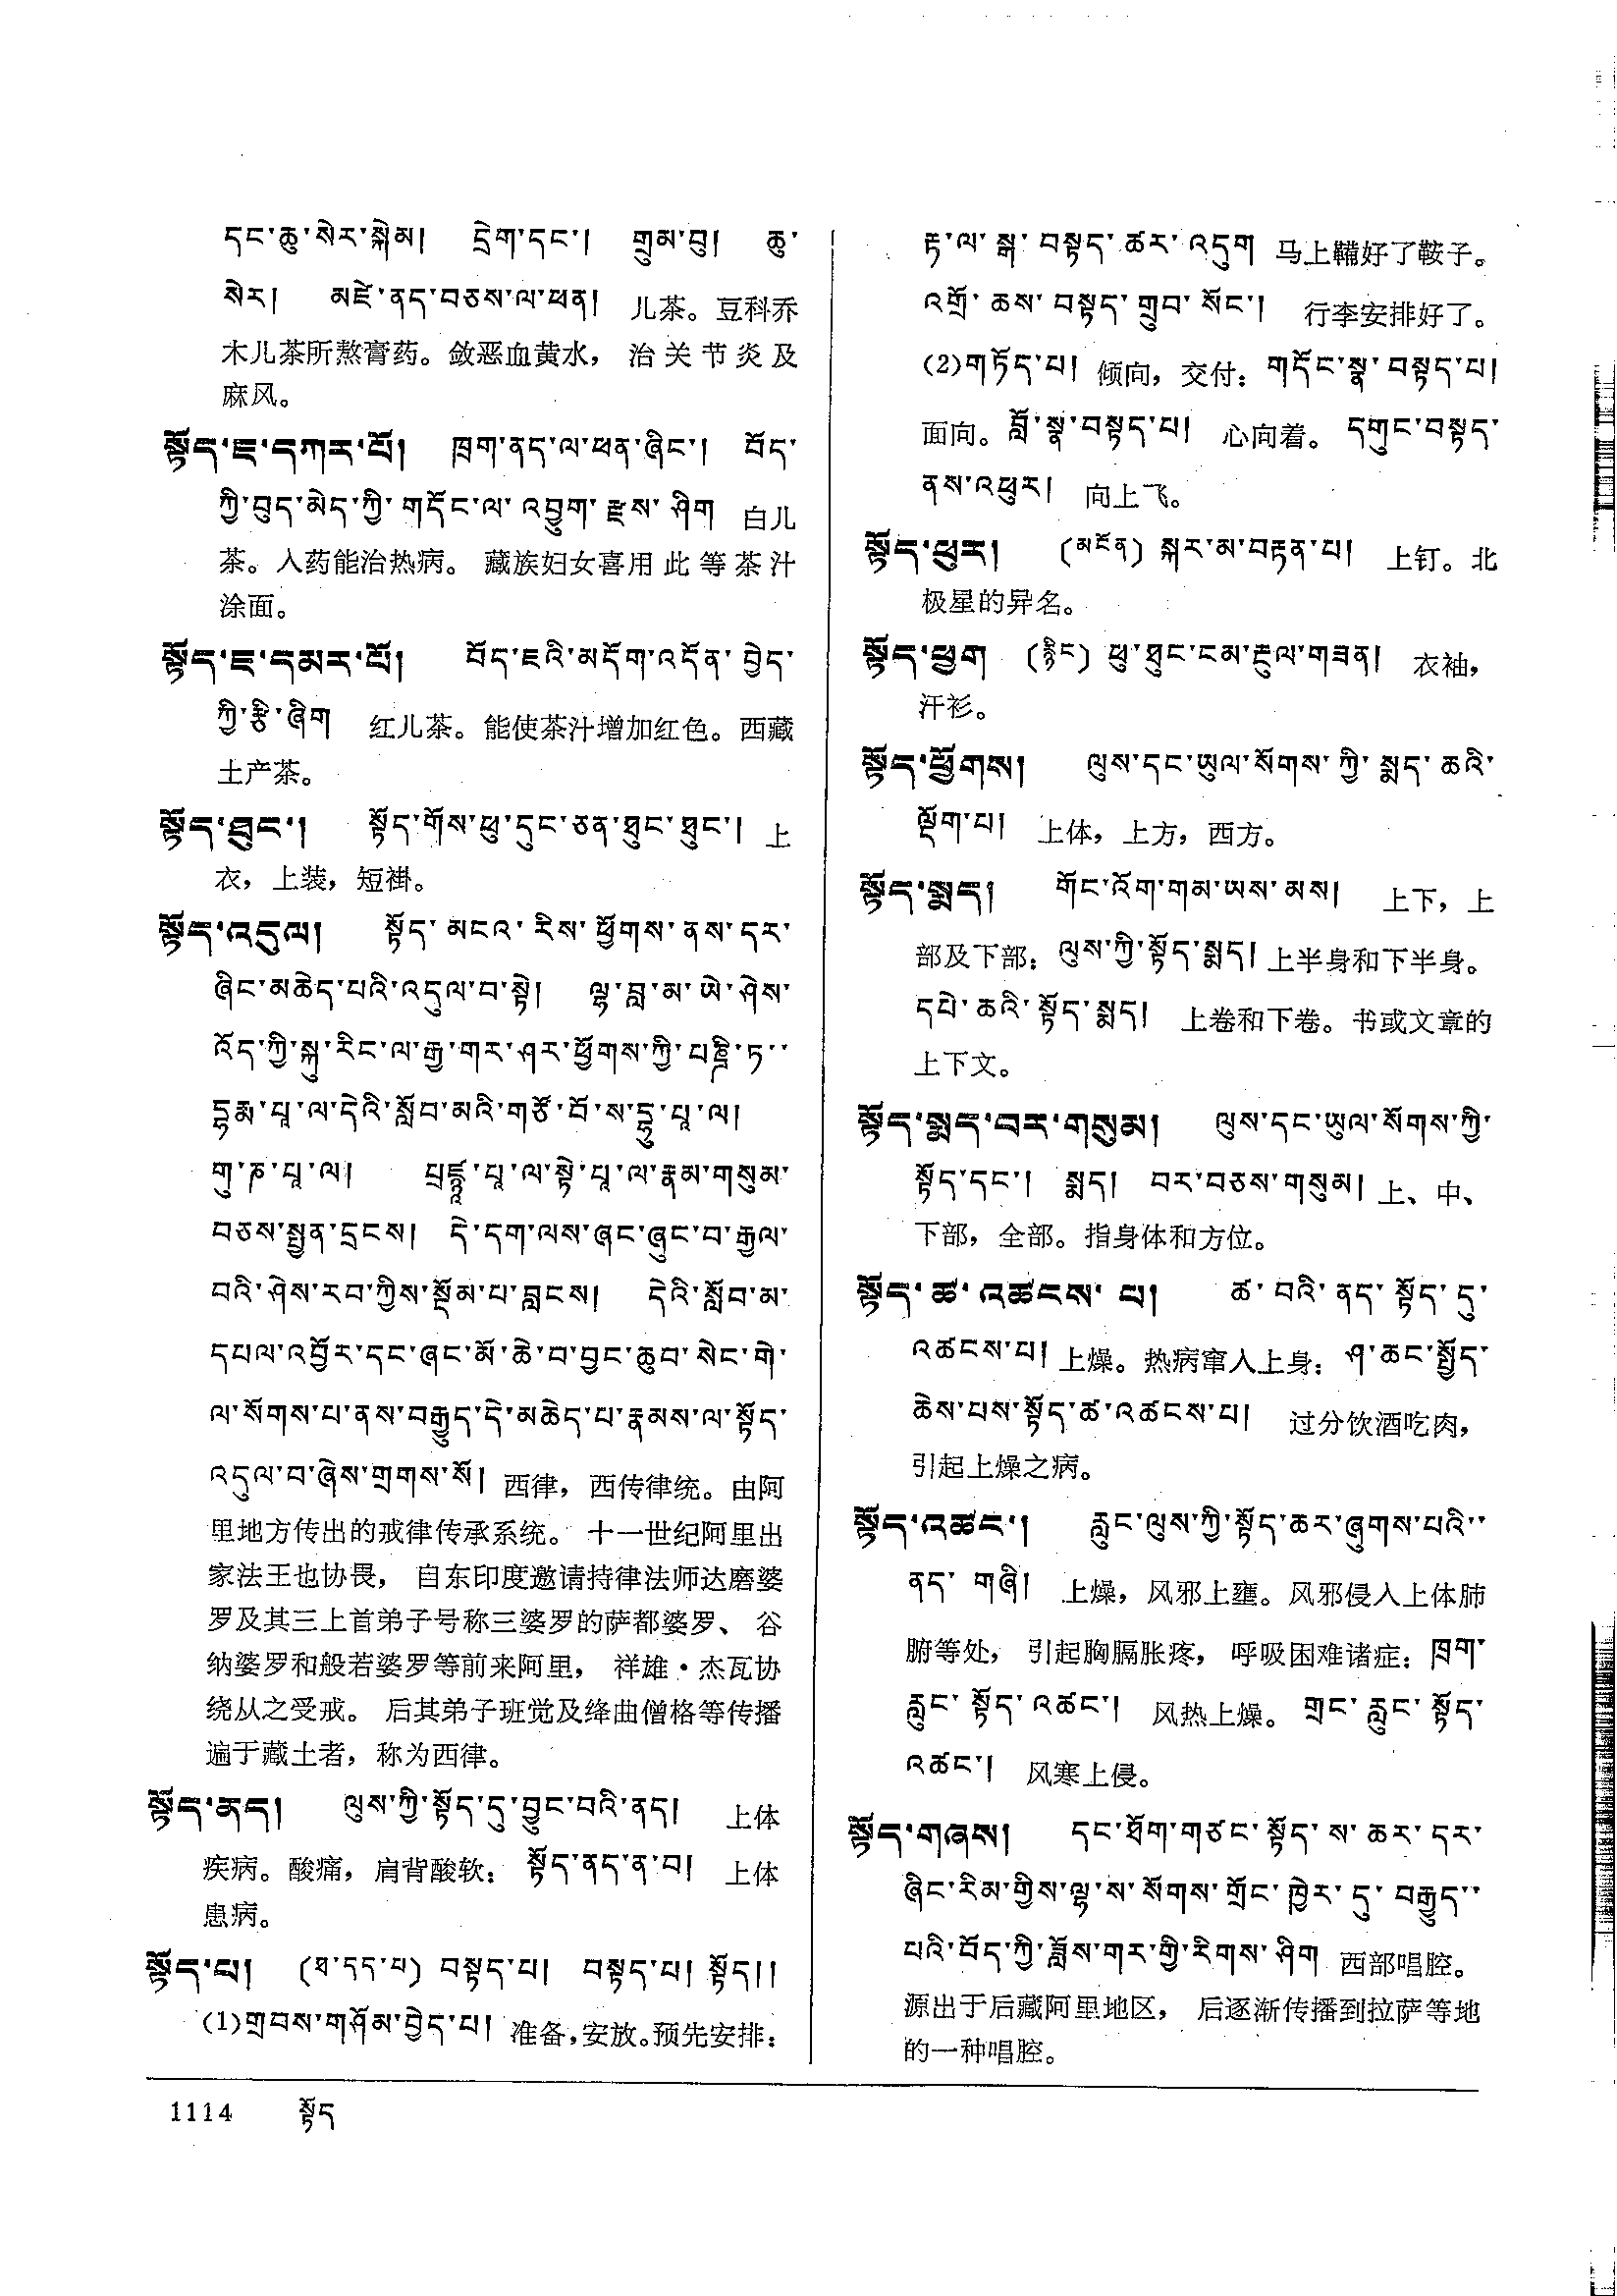 དང་ཆུ་སེར་སྐེམ། དྲེག་དང་། གྲུམ་བུ། ཆུ་
སེར། མཛེ་ནད་བཅས་ལ་ཕན། 儿茶。豆科乔
木儿茶所熬膏药。敛恶血黄水，治关节炎及
麻风。
སྟོད་ཇ་དཀར་པོ། ཁྲག་ནད་ལ་ཕན་ཞིང་། བོད་
ཀྱི་བུད་མེད་ཀྱི་གདོང་ལ་འབྱུག་རྫས་ཤིག 白儿
茶。入药能治热病。藏族妇女喜用此等茶汁
涂面。
སྟོད་ཇ་དམར་པོ། བོད་ཇའི་མདོག་འདོན་བྱེད་
ཀྱི་རྩི་ཞིག 红儿茶。能使茶汁增加红色。西藏
土产茶。
སྟོད་ཐུང་། སྟོད་གོས་ཕུ་དུང་ཅན་ཐུང་ཐུང་། 上
衣，上装，短褂。
སྟོད་འདུལ། སྟོད་མངའ་རིས་ཕྱོགས་ནས་དར་
ཞིང་མཆེད་པའི་འདུལ་བ་སྟེ། ལྷ་བླ་མ་ཡེ་ཤེས་
འོད་ཀྱི་སྐུ་རིང་ལ་རྒྱ་གར་ཤར་ཕྱོགས་ཀྱི་པཎྜི་ཏ་
དྷརྨ་པཱ་ལ་དེའི་སློབ་མའི་གཙོ་བོ་ས་དྷུ་པཱ་ལ།
གུ་ཎ་པཱ་ལ། པྲཛྙཱ་པཱ་ལ་སྟེ་པཱ་ལ་རྣམ་གསུམ་
བཅས་སྤྱན་དྲངས། དེ་དག་ལས་ཞང་ཞུང་བ་རྒྱལ་
བའི་ཤེས་རབ་ཀྱིས་སྡོམ་པ་བླངས། དེའི་སློབ་མ་
དཔལ་འབྱོར་དང་ཞང་མོ་ཆེ་བ་བྱང་ཆུབ་སེང་གེ་
ལ་སོགས་པ་ནས་བརྒྱུད་དེ་མཆེད་པ་རྣམས་ལ་སྟོད་
འདུལ་བ་ཞེས་གྲགས་སོ། 西律，西传律统。由阿
里地方传出的戒律传承系统。十一世纪阿里出
家法王也协畏，自东印度邀请持律法师达磨婆
罗及其三上首弟子号称三婆罗的萨都婆罗、谷
纳婆罗和般若婆罗等前来阿里，祥雄·杰瓦协
绕从之受戒。后其弟子班觉及绛曲僧格等传播
遍于藏土者，称为西律。
སྟོད་ནད། ལུས་ཀྱི་སྟོད་དུ་བྱུང་བའི་ནད། 上体
疾病。酸痛，肩背酸软：སྟོད་ནད་ན་བ། 上体
患病。
སྟོད་པ། (ཐ་དད་པ) བསྟད་པ། བསྟད་པ། སྟོད།།
(1)གྲབས་གཤོམ་བྱེད་པ། 准备，安放。预先安排：
རྟ་ལ་སྒ་བསྟད་ཚར་འདུག 马上鞴好了鞍子。
འགྲོ་ཆས་བསྟད་གྲུབ་སོང་། 行李安排好了。
(2)གཏོད་པ། 倾向，交付：གདོང་སྣ་བསྟད་པ།
面向。བློ་སྣ་བསྟད་པ། 心向着。དགུང་བསྟད་
ནས་འཕུར། 向上飞。
སྟོད་ཕུར། (མངོན) སྐར་མ་བརྟན་པ། 上钉。北
极星的异名。
སྟོད་ཕྱུག (རྙིང) ཕུ་ཐུང་ངམ་རྔུལ་གཟན། 衣袖，
汗衫。
སྟོད་ཕྱོགས། ལུས་དང་ཡུལ་སོགས་ཀྱི་སྨད་ཆའི་
ལྡོག་པ། 上体，上方，西方。
སྟོད་སྨད། གོང་འོག་གམ་ཡས་མས། 上下，上
部及下部：ལུས་ཀྱི་སྟོད་སྨད། 上半身和下半身。
དཔེ་ཆའི་སྟོད་སྨད། 上卷和下卷。书或文章的
上下文。
སྟོད་སྨད་བར་གསུམ། ལུས་དང་ཡུལ་སོགས་ཀྱི་
སྟོད་དང་། སྨད། བར་བཅས་གསུམ། 上、中、
下部，全部。指身体和方位。
སྟོད་ཚ་འཚངས་པ། ཚ་བའི་ནད་སྟོད་དུ་
འཚངས་པ། 上燥。热病窜入上身：ཤ་ཆང་སྤྱོད་
ཆེས་པས་སྟོད་ཚ་འཚངས་པ། 过分饮酒吃肉，
引起上燥之病。
སྟོད་འཚང་། རླུང་ལུས་ཀྱི་སྟོད་ཆར་ཞུགས་པའི་
ནད་གཞི། 上燥，风邪上壅。风邪侵入上体肺
腑等处，引起胸膈胀疼，呼吸困难诸症：ཁྲག་
རླུང་སྟོད་འཚང་། 风热上燥。གྲང་རླུང་སྟོད་
འཚང་། 风寒上侵。
སྟོད་གཞས། དང་ཐོག་གཙང་སྟོད་ས་ཆར་དར་
ཞིང་རིམ་གྱིས་ལྷ་ས་སོགས་གྲོང་ཁྱེར་དུ་བརྒྱུད་
པའི་བོད་ཀྱི་ཟློས་གར་གྱི་རིགས་ཤིག 西部唱腔。
源出于后藏阿里地区，后逐渐传播到拉萨等地
的一种唱腔。
1114 སྟོད